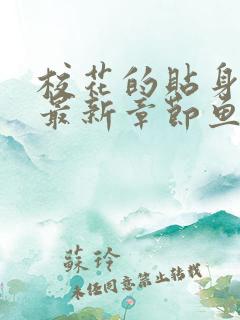 校花的贴身
最新章节鱼
蘇玲
未经同意禁止转载